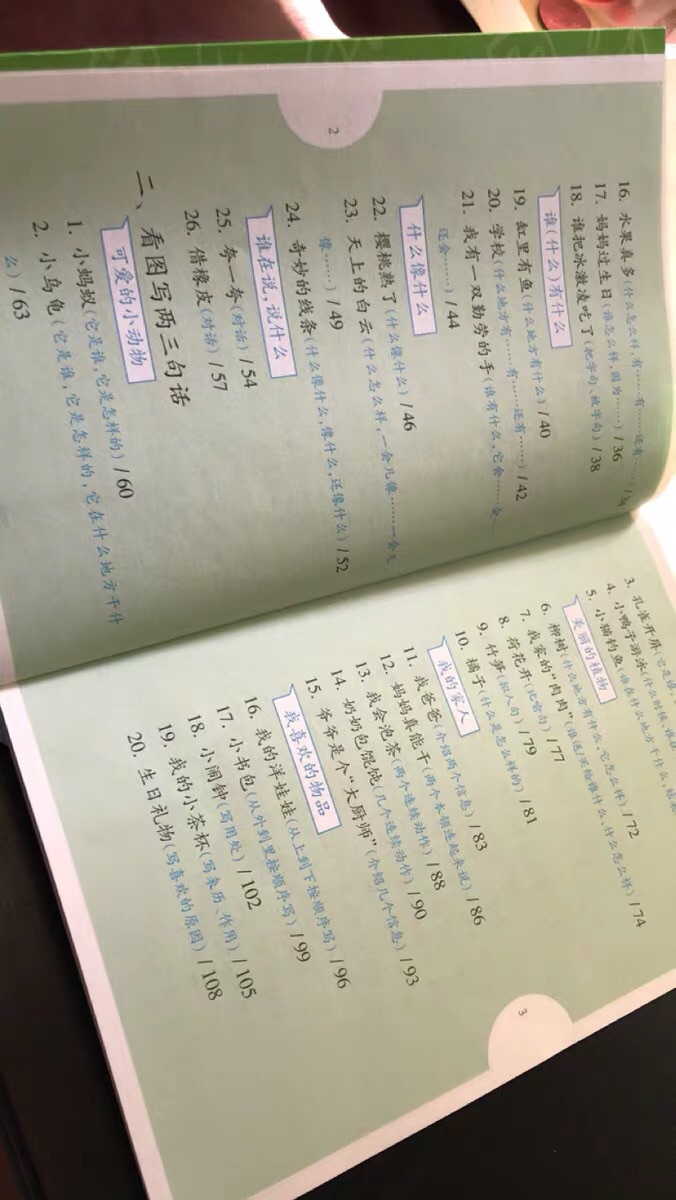 16. 水果真多(什么怎么样,有……有……还有……)/34
17. 妈妈过生日(谁怎么样,因为……)/36
18. 谁把冰激凌吃了(把字句、被字句)/38
谁(什么)有什么
19. 缸里有鱼(什么地方有什么)/40
20. 学校(什么地方有……有……还有……)/42
21. 我有一双勤劳的手(谁有什么,它会……会……
还会……)/44
什么像什么
22. 樱桃熟了(什么像什么)/46
23. 天上的白云(什么怎么样,一会儿像……一会儿
像……)/49
24. 奇妙的线条(什么像什么,像什么,还像什么)/52
谁在说,说什么
25. 夸一夸(对话)/54
26. 借橡皮(对话)/57
二、看图写两三句话
可爱的小动物
1. 小蚂蚁(它是谁,它是怎样的)/60
2. 小乌龟(它是谁,它是怎样的,它在什么地方干什
么)/63
2
3. 孔雀开屏(它是谁,
4. 小鸭子游泳(什么时候,谁在
5. 小猫钓鱼(谁在什么地方干什么,结果
美丽的植物
6. 柳树(什么地方有什么,它怎么样)/72
7. 我家的“肉肉”(谁送/买给谁什么,什么怎么样)/74
8. 荷花开(比喻句)/77
9. 竹笋(拟人句)/79
10. 橘子(什么是怎么样的)/81
我的家人
11. 我爸爸(介绍两个信息)/83
12. 妈妈真能干(两个本领连起来说)/86
13. 我会泡茶(两个连续动作)/88
14. 奶奶包馄饨(几个连续动作)/90
15. 爷爷是个“大厨师”(介绍几个信息)/93
我喜欢的物品
16. 我的洋娃娃(从上到下按顺序写)/96
17. 小书包(从外到里按顺序写)/99
18. 小闹钟(写用处)/102
19. 我的小茶杯(写来历、作用)/105
20. 生日礼物(写喜欢的原因)/108
3